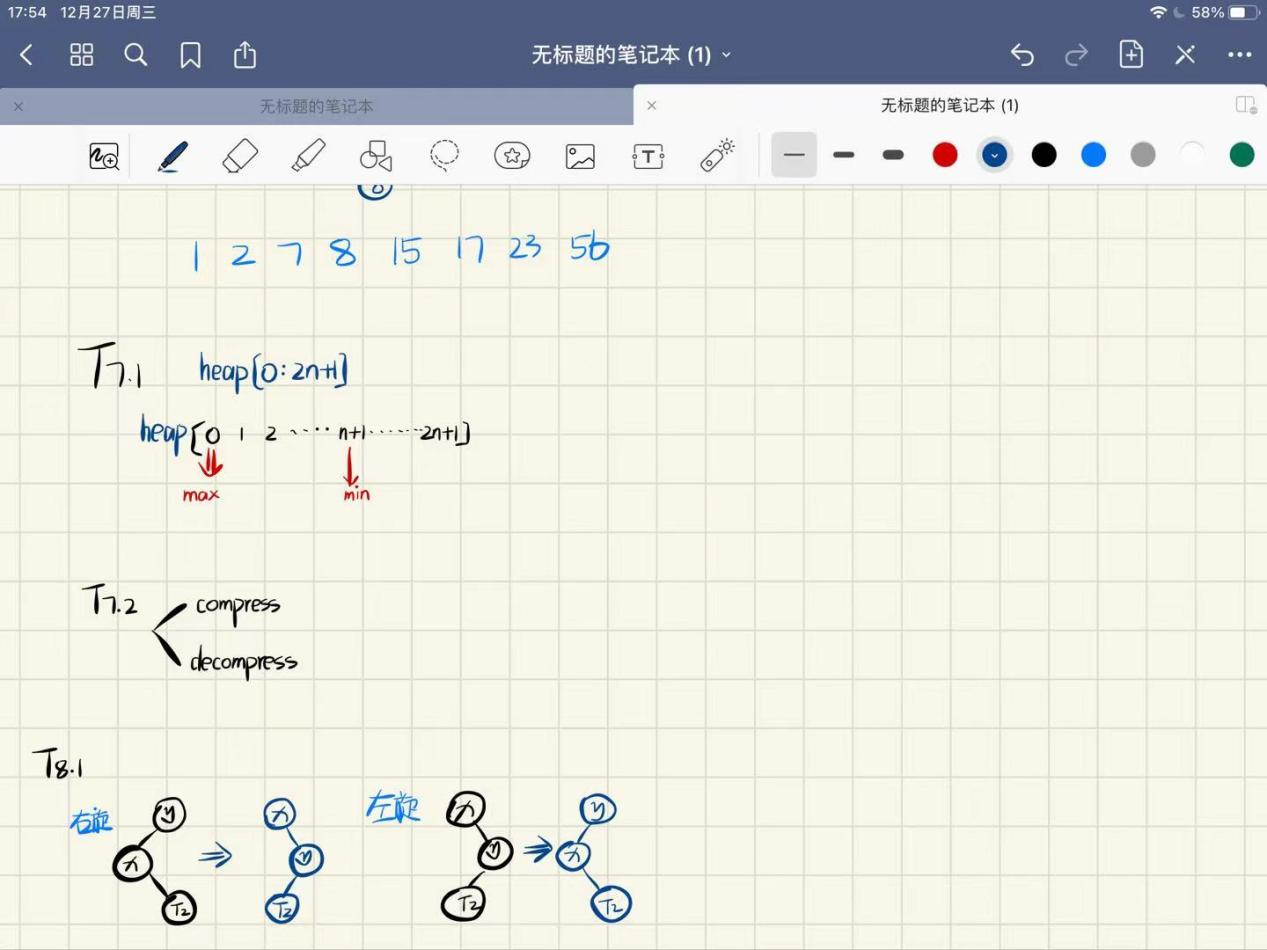 17:54 12月27日周三
58%
无标题的笔记本 (1)
无标题的笔记本
无标题的笔记本 (1)
T
8
1 2 7 8 15 17 23 56
T7.1 heap[0:2n+1]
heap[0 1 2 ..... n+1 ...... 2n+1]
max min
T7.2
compress
decompress
T8.1
右旋 y x T2 ⇒ x y T2
左旋 x y T2 ⇒ y x T2